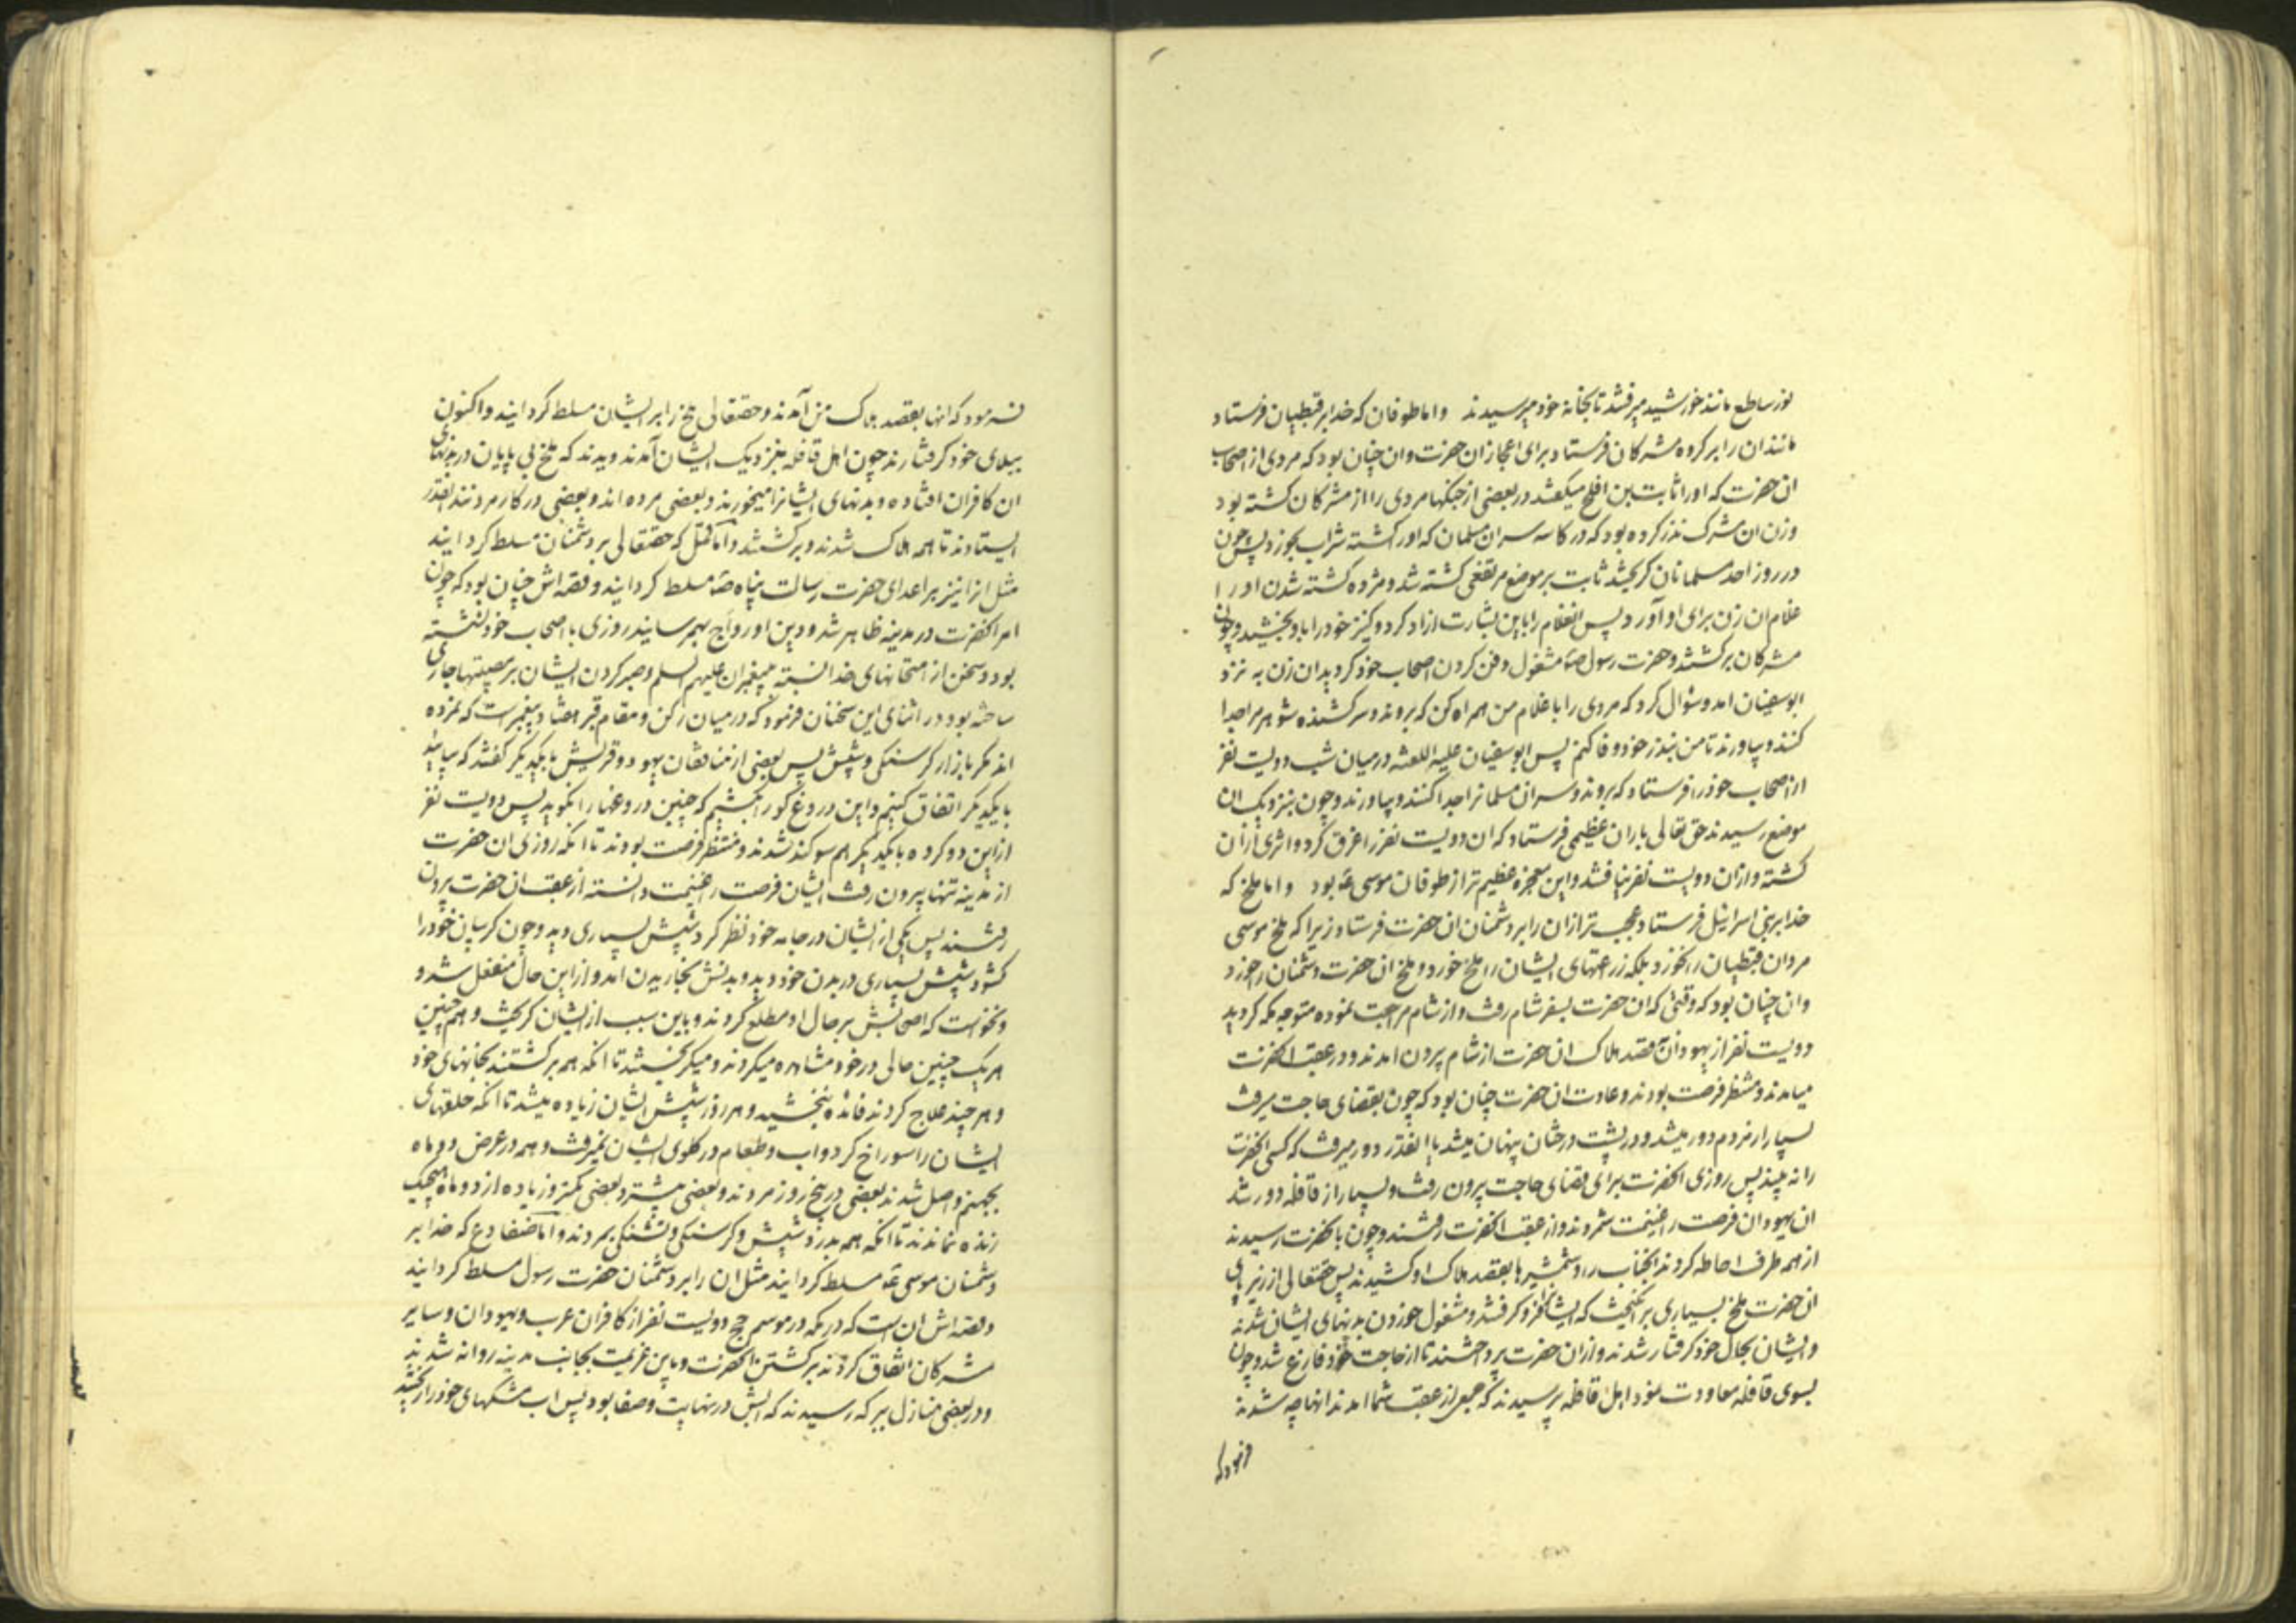 نور ساطع مانند خورشید میرفتند تا بخانه خود میرسیدند واما طوفان که خدا بر قبطیان فرستاد
مانند ان را بر کروه مشرکان فرستاد برای اعجاز ان حضرت وان چنان بود که مردی از اصحاب
ان حضرت که او را ثابت بن افلح میکفتند در بعضی از جنکها مردی را از مشرکان کشته بود
وزن ان مشرک نذر کرده بود که در کاسه سر ان مسلمان که او را کشته شراب بخورد پس چون
در روز احد مسلمانان کریختند ثابت بر موضع مرتفعی کشته شد و مژده کشته شدن او را
غلام ان زن برای او آورد پس انغلام را باین بشارت ازاد کرد و کنیز خود را باو بخشید و چون
مشرکان برکشتند و حضرت رسول ص مشغول دفن کردن اصحاب خود کردید ان زن به نزد
ابوسفیان امد و سؤال کرد که مردی را با غلام من همراه کن که بروند و سر کشنده شوهر مرا جدا
کنند و بیاورند تا من بنذر خود وفا کنم پس ابوسفیان علیه اللعنه در میان شب دویست نفر
از اصحاب خود را فرستاد که بروند و سر ان مسلمانرا جدا کنند و بیاورند و چون بنزدیک ان
موضع رسیدند حق تعالی باران عظیمی فرستاد که ان دویست نفر را غرق کرد و اثری از ان
کشته و از ان دویست نفر نیافتند و این معجزه عظیم تر از طوفان موسی ع بود واما ملخ که
خدا بر بنی اسرائیل فرستاد عجب تر از ان را بر دشمنان ان حضرت فرستاد زیرا که ملخ موسی
مردان قبطیان را نخورد بلکه زراعتهای ایشان را ملخ خورد و ملخ ان حضرت دشمنان را خورد
وان چنان بود که وقتی که ان حضرت بسفر شام رفت و از شام مراجعت نموده متوجه مکه کردید
دویست نفر از یهودان بقصد هلاک ان حضرت از شام بیرون امدند و در عقب انحضرت
میامدند و منتظر فرصت بودند و عادت ان حضرت چنان بود که چون بقضای حاجت میرفت
بسیار از مردم دور میشد و در پشت درختان پنهان میشد یا انقدر دور میرفت که کسی انحضرت
را نه بیند پس روزی انحضرت برای قضای حاجت بیرون رفت و بسیار از قافله دور شد
ان یهودان فرصت را غنیمت شمردند و از عقب انحضرت رفتند و چون بانحضرت رسیدند
از همه طرف احاطه کردند انجناب را و شمشیرها بقصد هلاک او کشیدند پس حقتعالی از زیر پای
ان حضرت ملخ بسیاری بر انکیخت که ایشانرا فرو کرفتند و مشغول خوردن بدنهای ایشان شدند
وایشان بحال خود کرفتار شدند و از ان حضرت پرداختند تا از حاجت خود فارغ شد و چون
بسوی قافله معاودت نمود اهل قافله پرسیدند که جمعی از عقب شما امدند انها چه شدند
فرمود که
فرمود که انها بقصد هلاک من آمدند و حقتعالی ملخ را بر ایشان مسلط کردانید و اکنون
ببلای خود کرفتارند چون اهل قافله بنزدیک ایشان آمدند دیدند که ملخ بی پایان در بدنهای
ان کافران افتاده و بدنهای ایشانرا میخورند و بعضی مرده اند و بعضی در کار مردنند انقدر
ایستادند تا همه هلاک شدند و برکشتند و اما قمل که حقتعالی بر دشمنان مسلط کردانید
مثل انرا نیز بر اعدای حضرت رسالت پناه ص مسلط کردانید و قصه اش چنان بود که چون
امر انحضرت در مدینه ظاهر شد و دین او رواج بهم رسانید روزی با اصحاب خود نشسته
بود و سخن از امتحانهای خدا نسبته به پیغمبران علیهم السلم و صبر کردن ایشان بر مصیبتها جاری
ساخته بود در اثنای این سخنان فرمود که در میان رکن و مقام قبر هفتاد پیغمبر است که نمرده
اند مکر بازار کرسنکی و شپش پس بعضی از منافقان یهود و قریش با یکدیکر کفتند که بیایید
با یکدیکر اتفاق کنیم و این دروغ کو را بکشیم که چنین دروغها را نکوید پس دویست نفر
از این دو کروه با یکدیکر هم سوکند شدند و منتظر فرصت بودند تا انکه روزی ان حضرت
از مدینه تنها بیرون رفت ایشان فرصت را غنیمت دانسته از عقب ان حضرت بیرون
رفتند پس یکی از ایشان در جامه خود نظر کرد شپش بسیاری دید و چون کریبان خود را
کشود شپش بسیاری در بدن خود دید و بدنش بخاریدن امد و از این حال منفعل شد و
نخواست که اصحابش بر حال او مطلع کردند و باین سبب از ایشان کریخت و هم چنین
هر یک چنین حالی در خود مشاهده میکردند و میکریختند تا انکه همه برکشتند بخانهای خود
و هر چند علاج کردند فائده نبخشید و هر روز شپش ایشان زیاده میشد تا انکه حلقهای
ایشان را سوراخ کرد و اب و طعام در کلوی ایشان نمیرفت و همه در عرض دو ماه
بجهنم واصل شدند بعضی در پنج روز مردند و بعضی بیشتر و بعضی کمتر و زیاده از دو ماه هیچیک
زنده نماندند تا انکه همه بدرد شپش و کرسنکی و تشنکی بمردند و اما ضفادع که خدا بر
دشمنان موسی ع مسلط کردانید مثل ان را بر دشمنان حضرت رسول مسلط کردانید
و قصه اش ان است که در مکه در موسم حج دویست نفر از کافران عرب و یهودان و سایر
مشرکان اتفاق کردند بر کشتن انحضرت و باین عزیمت بجانب مدینه روانه شدند
و در بعضی منازل ببرکه رسیدند که ابش در نهایت صفا بود پس اب مشکهای خود را ریختند